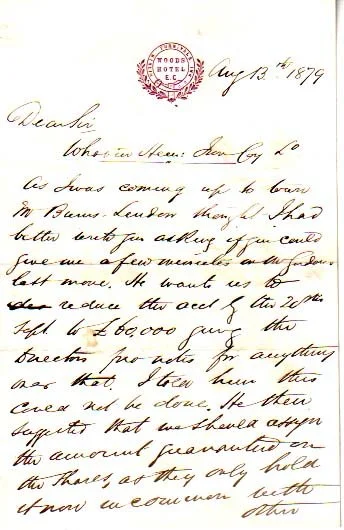 FURNIVALS INN
WOODS
HOTEL
E.C.
Aug 13th 1879
Dear Sir
Iron Coy Ld
As I was coming up to town
Mr Burns London thought I had
better write you asking if you could
give me a few minutes on
last move. He wants us to
reduce the acct by the 20th
Sept to £60,000 giving the
Directors pro notes for anything
over that. I told him this
could not be done. He then
suggested that we should assign
the amount guaranteed on
the shares, as they only hold
it now in common with
other